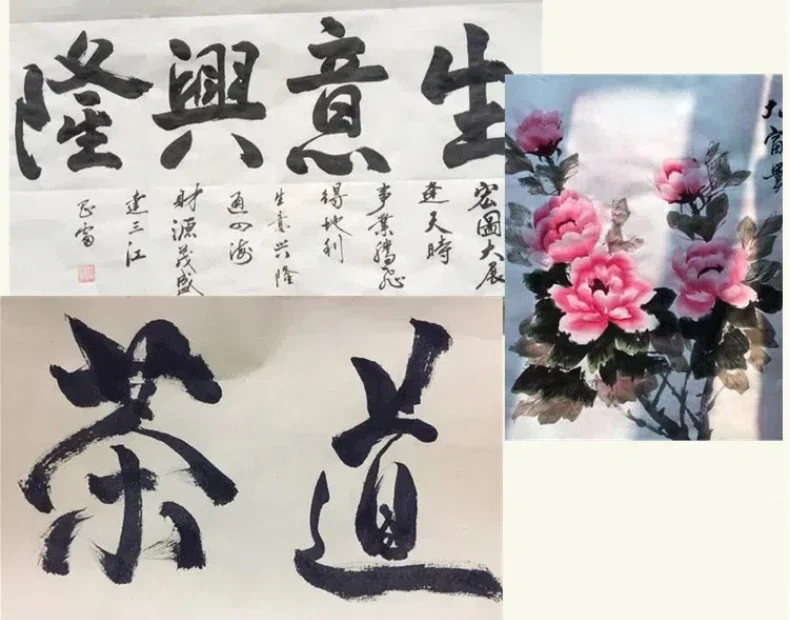 生意興隆
宏圖大展
逢天時
事業騰飛
得地利
生意兴隆
通四海
財源茂盛
達三江
大富貴
茶道